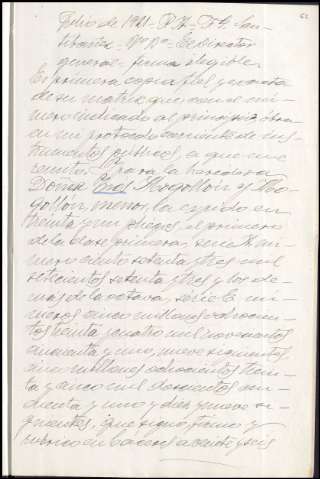 62
Julio de 1921 - P. H. - F. G. San-
tibañez - Vº Bº - El Director
general - firma ilegible.
Es primera copia fiel y exacta
de su matriz que con el nú-
mero indicado al principio obra
en mi protocolo corriente de ins-
trumentos públicos, a que me
remito. Y para la heredera
Doña Sol Mogollón y Mo-
gollón, menor, la expido en
treinta y un pliegos, el primero
de la clase primera, serie A nú-
mero ciento setenta y tres mil
seiscientos setenta y tres y los de-
más de la octava, serie E, nú-
meros cinco millones ochocien-
tos treinta y cuatro mil novecientos
cincuenta y uno, nueve siguientes
cinco millones ochocientos trein-
ta y cinco mil doscientos cin-
cuenta y uno y diez y nueve si-
guientes, que signo, firmo y
rubrico en Cáceres a veinte y seis